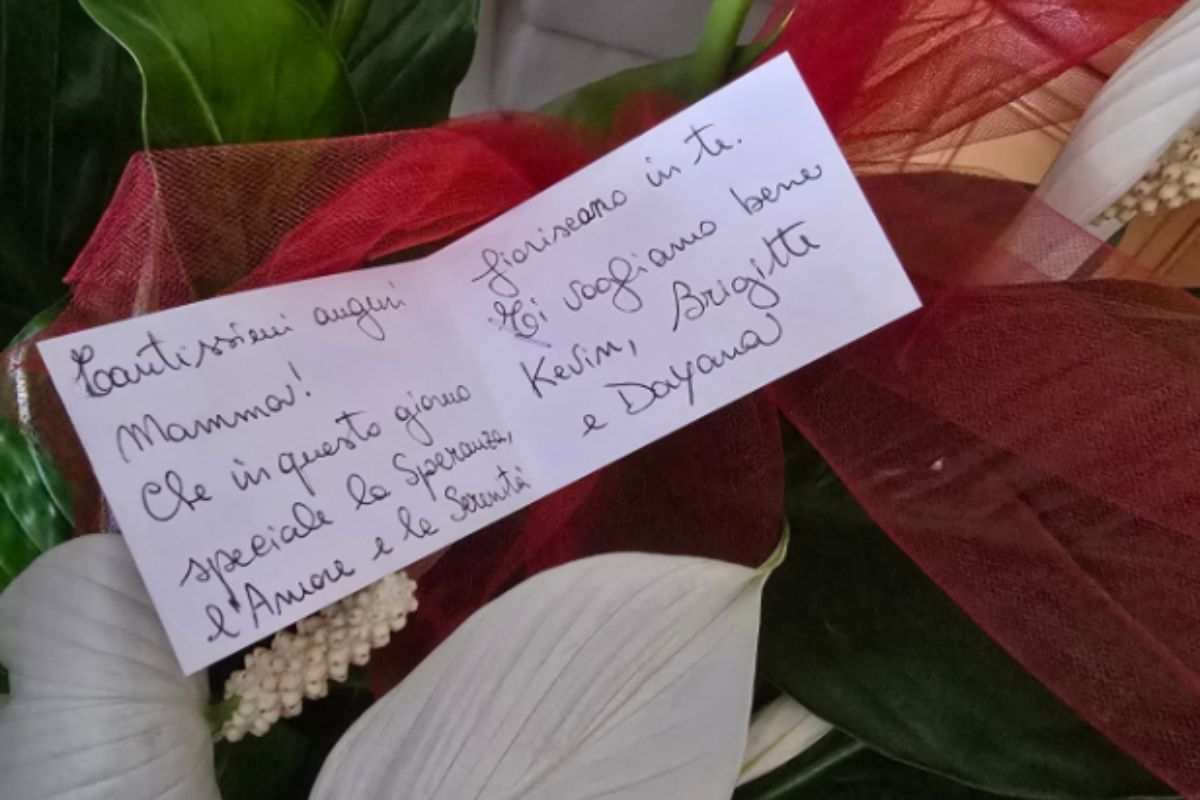 Tantissimi auguri
Mamma!
Che in questo giorno
speciale la Speranza,
l'Amore e la Serenità
fioriscano in te.
Ti vogliamo bene
Kevin, Brigitte
e Dayana